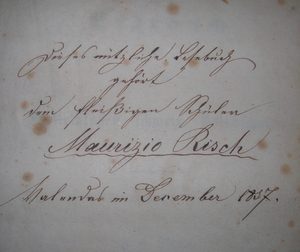 Dieses nützliche Lesebuch
gehört
dem fleißigen Schüler
Maurizio Risch
Valendas im December 1857.